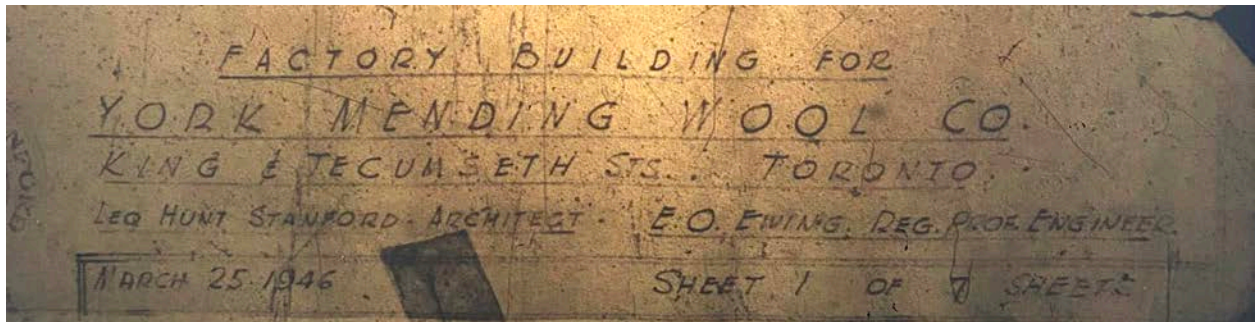 FACTORY BUILDING FOR
YORK MENDING WOOL CO.
KING & TECUMSETH STS. TORONTO.
LEO HUNT STANFORD. ARCHITECT. E.O. EWING. REG. PROF. ENGINEER.
MARCH 25.1946 SHEET 1 OF 7 SHEETS